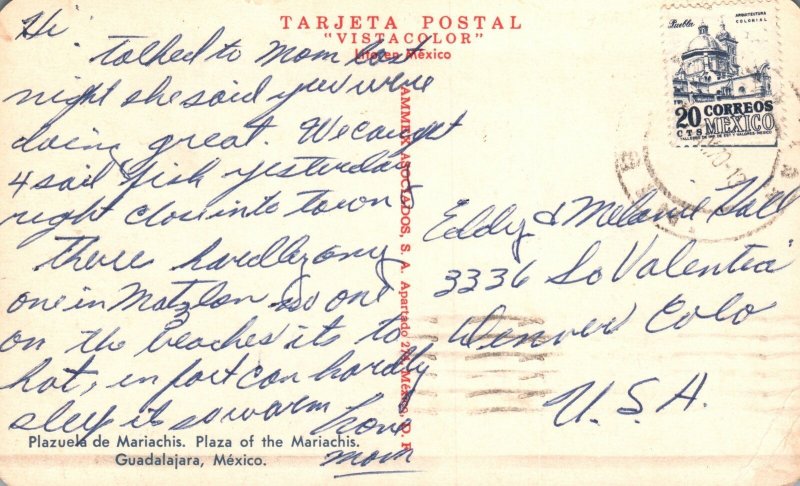 TARJETA POSTAL
"VISTACOLOR"
Lito en México
Hi
talked to Mom last
night she said you were
doing great. We caught
4 sail fish yesterday
right close into town
theres hardly any
one in Matzlon no one
on the beaches its to
hot, in fact can hardly
sleep its so warm
love
Mom
Plazuela de Mariachis. Plaza of the Mariachis.
Guadalajara, México.
AMMEX ASOCIADOS, S. A. Apartado México, D. F.
Puebla
ARQUITECTURA
COLONIAL
20 CORREOS
CTS MEXICO
Eddy & Melanie Hall
3336 So Valentia
Denver Colo
U.S.A.